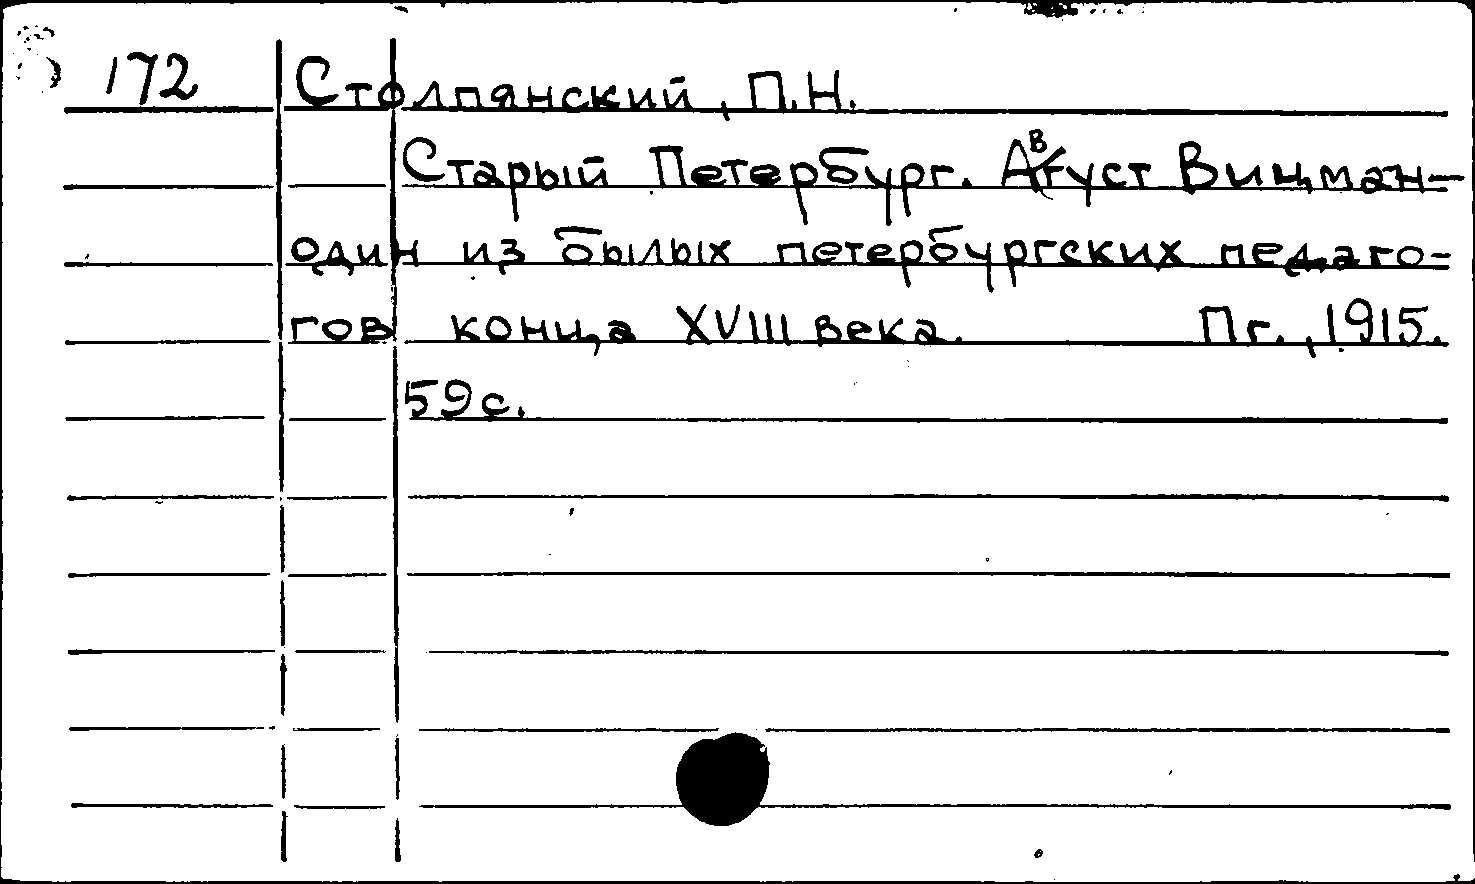 172 Столпянский, П.Н.
Старый Петербург. Август Вицман–
один из былых петербургских педаго-
гов конца XVIII века. Пг., 1915.
59с.